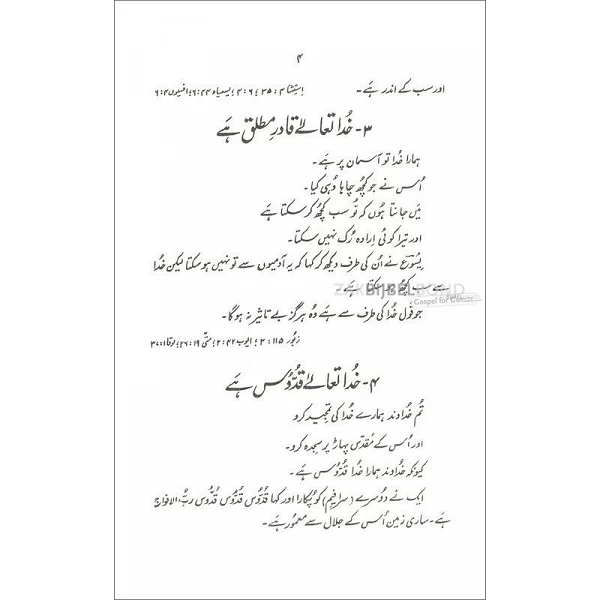 ۴
اور سب کے اندر ہے۔
اِستِثنا ۴: ۳۵؛ ۶: ۴؛ یسعیاہ ۴۴: ۶؛ افسیوں ۴: ۶
۳۔ خُدا تعالےٰ قادرِ مطلق ہے
ہمارا خُدا تو آسمان پر ہے۔
اُس نے جو کچُھ چاہا وُہی کیا۔
مَیں جانتا ہُوں کہ تُو سب کچُھ کر سکتا ہے
اور تیرا کوئی اِرادہ رُک نہیں سکتا۔
یِسُوع نے اُن کی طرف دیکھ کر کہا کہ یہ آدمیوں سے تو نہیں ہو سکتا لیکن خُدا
سے سب کچُھ ہو سکتا ہے۔
BIJBEL
Gospel for Guests
جو قول خُدا کی طرف سے ہے وہ ہرگز بے تاثیر نہ ہوگا۔
زبُور ۱۱۵: ۳؛ ایوب ۴۲: ۲؛ متّی ۱۹: ۲۶؛ لوقا ۱: ۳۷
۴۔ خُدا تعالےٰ قدُّوس ہے
تُم خُداوند ہمارے خُدا کی تمجید کرو
اور اُس کے مُقدّس پہاڑ پر سِجدہ کرو۔
کیونکہ خُداوند ہمارا خُدا قدُّوس ہے۔
ایک نے دُوسرے (سرافیم) کو پُکارا اور کہا قدُّوس قدُّوس قدُّوس ربُّ الافواج
ہے۔ ساری زمین اُس کے جلال سے معمُور ہے۔